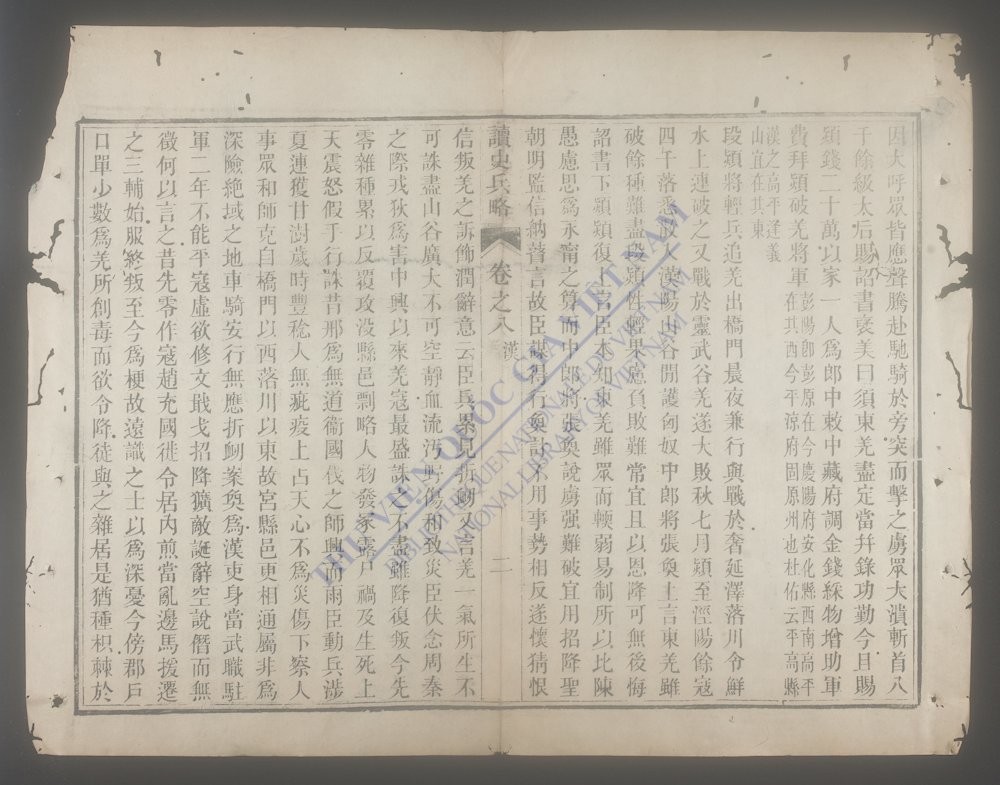 因大呼眾皆應聲騰赴馳騎於旁突而擊之虜眾大潰斬首八
千餘級太后賜詔書褒美曰須東羌盡定當并錄功勤今且賜
熲錢二十萬以家一人為郎中敕中藏府調金錢綵物增助軍
費拜熲破羌將軍彭陽卽彭原在今慶陽府安化縣西南高平
在其西今平涼府固原州也杜佑云平高縣
漢之高平逢義
山宜在其東
段熲將輕兵追羌出橋門晨夜兼行與戰於奢延澤落川令鮮
水上連破之又戰於靈武谷羌遂大敗秋七月熲至涇陽餘寇
四千落悉散入漢陽山谷閒護匈奴中郎將張奐上言東羌雖
破餘種難盡段熲性輕果慮負敗難常宜且以恩降可無後悔
詔書下熲熲復上言臣本知東羌雖眾而輭弱易制所以比陳
愚慮思為永甯之算而中郎將張奐說虜强難破宜用招降聖
朝明監信納瞽言故臣謀得行奐計不用事勢相反遂懷猜恨
讀史兵略 卷之八 漢 二
信叛羌之訴飾潤辭意云臣兵累見折衂又言羌一氣所生不
可誅盡山谷廣大不可空靜血流汚野傷和致災臣伏念周秦
之際戎狄為害中興以來羌寇最盛誅之不盡雖降復叛今先
零雜種累以反覆攻沒縣邑剽略人物發冢露尸禍及生死上
天震怒假手行誅昔邢為無道衞國伐之師興而雨臣動兵涉
夏連獲甘澍歲時豐稔人無疵疫上占天心不為災傷下察人
事眾和師克自橋門以西落川以東故宮縣邑更相通屬非為
深險絶域之地車騎安行無應折衂案奐為漢吏身當武職駐
軍二年不能平寇虛欲修文戢戈招降獷敵誕辭空說僭而無
徵何以言之昔先零作寇趙充國徙令居內煎當亂邊馬援遷
之三輔始服終叛至今為梗故遠識之士以為深憂今傍郡戶
口單少數為羌所創毒而欲令降徒與之雜居是猶種枳棘於
THƯ VIỆN QUỐC GIA VIỆT NAM
BIBLIOTHÈQUE NATIONALE DE VIETNAM
NATIONAL LIBRARY OF VIETNAM